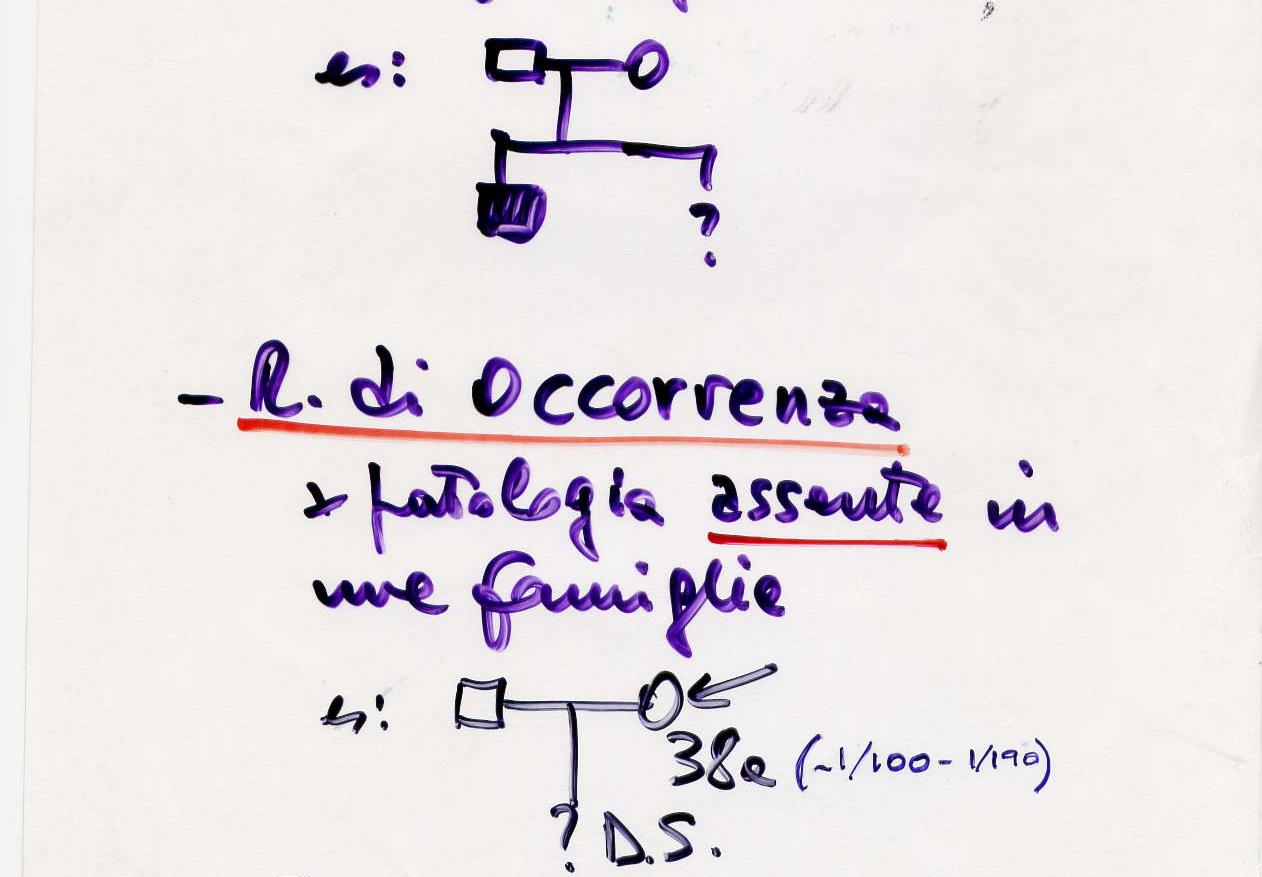 es:
?
- R. di Occorrenza
→ patologia assente in
una famiglia
es:
38a (~1/100-1/190)
? D.S.